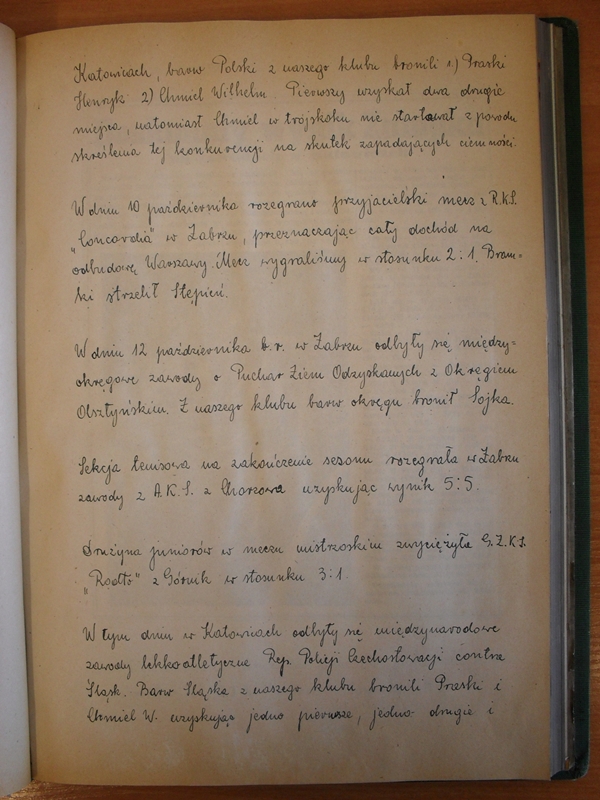 Katowicach, barw Polski z naszego klubu bronili 1) Praski
Henryk 2) Chmiel Wilhelm. Pierwszy uzyskał dwa drugie
miejsca, natomiast Chmiel w trójskoku nie startował z powodu
skreślenia tej konkurencji na skutek zapadających ciemności.
W dniu 10 października rozegrano przyjacielski mecz z R.K.S.
„Concordia" w Zabrzu, przeznaczając cały dochód na
odbudowę Warszawy. Mecz wygraliśmy w stosunku 2:1. Bram-
ki strzelił Stępień.
W dniu 12 października b.r. w Zabrzu odbyły się między=
okręgowe zawody o Puchar Ziem Odzyskanych z Okręgiem
Olsztyńskim. Z naszego klubu barw okręgu bronił Sojka.
Sekcja tenisowa na zakończenie sezonu rozegrała w Zabrzu
zawody z A.K.S. z Chorzowa uzyskując wynik 5:5.
Drużyna juniorów w meczu mistrzoskim zwyciężyła G.Z.K.S.
„Rodło" z Górnik w stosunku 3:1.
W tym dniu w Katowicach odbyły się międzynarodowe
zawody lehkoatletyczne Rep. Policji Czechosłowacji contra
Śląsk. Barw Śląska z naszego klubu bronili Praski i
Chmiel W. uzyskując jedno pierwsze, jedno drugie i